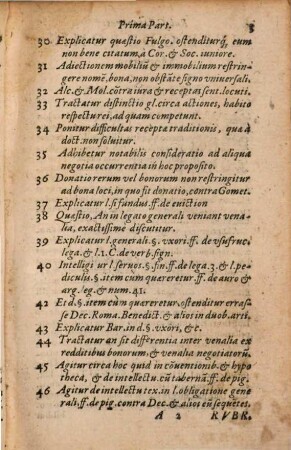 Prima Part. 3
30 Explicatur quæstio Fulgo. ostenditurq́, eum
non bene citatum à Cor. & Soc. iuniore.
31 Adiectionem mobiliũ & immobilium restrin
gere nomẽ. bona, non obstãte signo vniuersali.
32 Alc. & Mol. cõtra iura & receptas sent. locuti.
33 Tractatur distinctio gl. circa actiones, habito
respectu rei, ad quam competunt.
34 Ponitur difficultas receptæ traditionis, quæ à
doct. non soluitur.
35 Adhibetur notabilis consideratio ad aliqua
negotia occurrentia in hoc proposito.
36 Donatio rerum vel bonorum non restringitur
ad bona loci, in quo fit donatio, contra Gomet.
37 Explicatur l. si fundus. ff. de euiction
38 Quæstio, An in legato generali veniant vena-
lia, exactissimè discutitur.
39 Explicatur l. generali. §. vxori. ff. de vsufruc.
lega. & l. 1. C. de verb. sign.
40 Intelligitur l. seruos. §. fin. ff. de lega. 3. & l. pe-
diculis. §. item cum quæreretur. ff. de auro &
arg. leg. & num. 41.
42 Et d. §. item cum quæreretur. ostenditur erras-
se Dec. Roma. Benedict. & alios in duob. arti.
43 Explicatur Bar. in d. §. vxori, &c.
44 Tractatur an sit differentia inter venalia ex
redditibus bonorum, & venalia negotiatorũ.
45 Agitur circa hoc quid in cõuentionib. & hypo
theca, & de intellectu. cũ tabernã. ff. de pig.
46 Agitur de intellectu tex. in l. obligatione gene
rali. ff. de pig. contra Dec. & alios eũ seq̃netes.
A 2 RVBR.